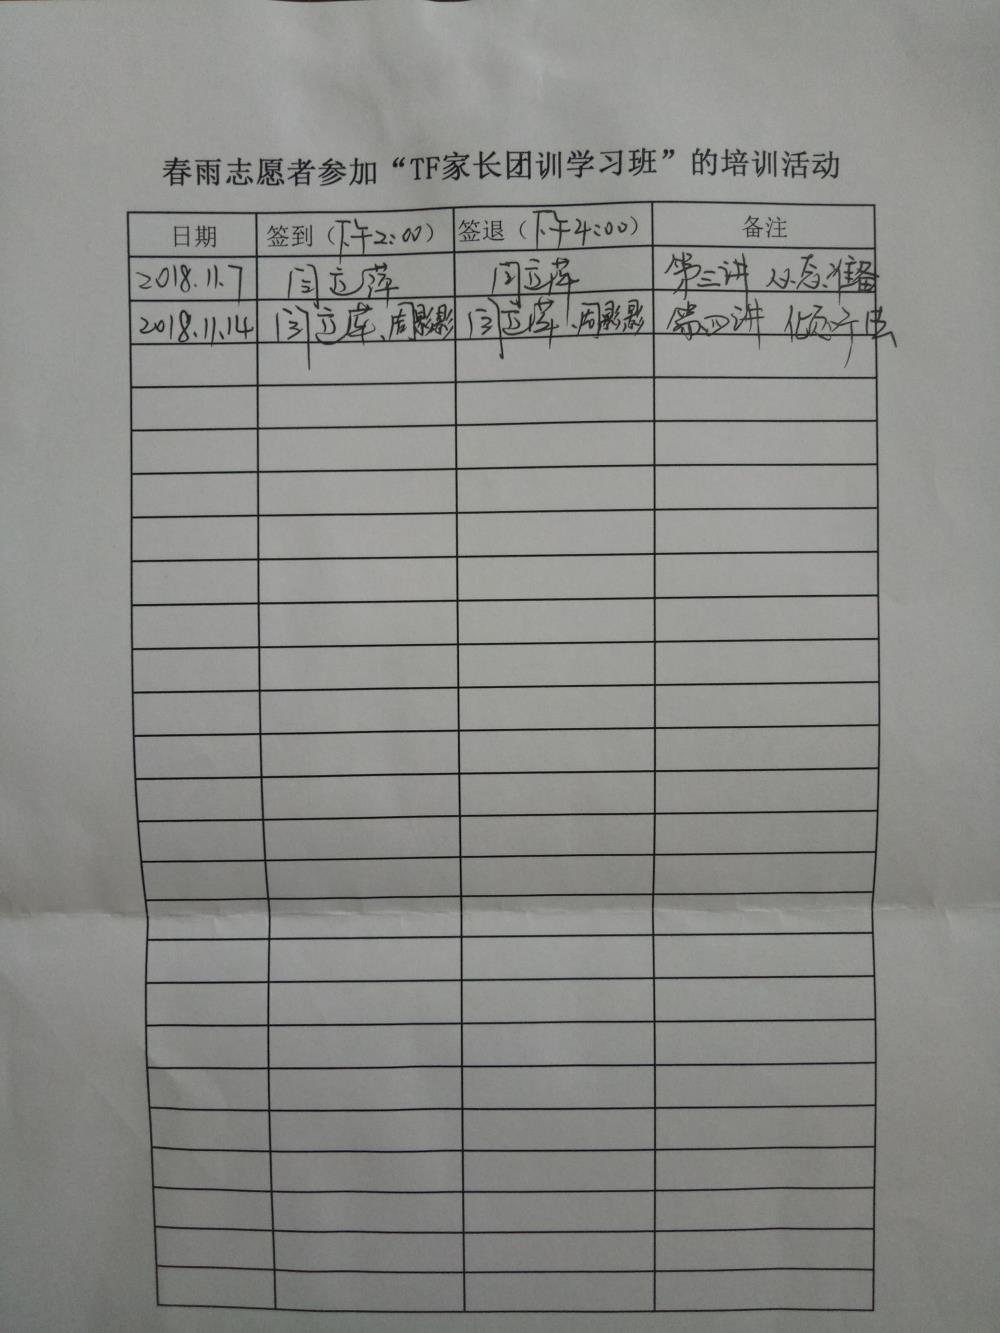 春雨志愿者参加“TF家长团训学习班”的培训活动
日期 签到（下午2:00） 签退（下午4:00） 备注
2018.11.7 闫立萍 闫立萍 第三讲 心态准备
2018.11.14 闫立萍、周影影 闫立萍、周影影 第四讲